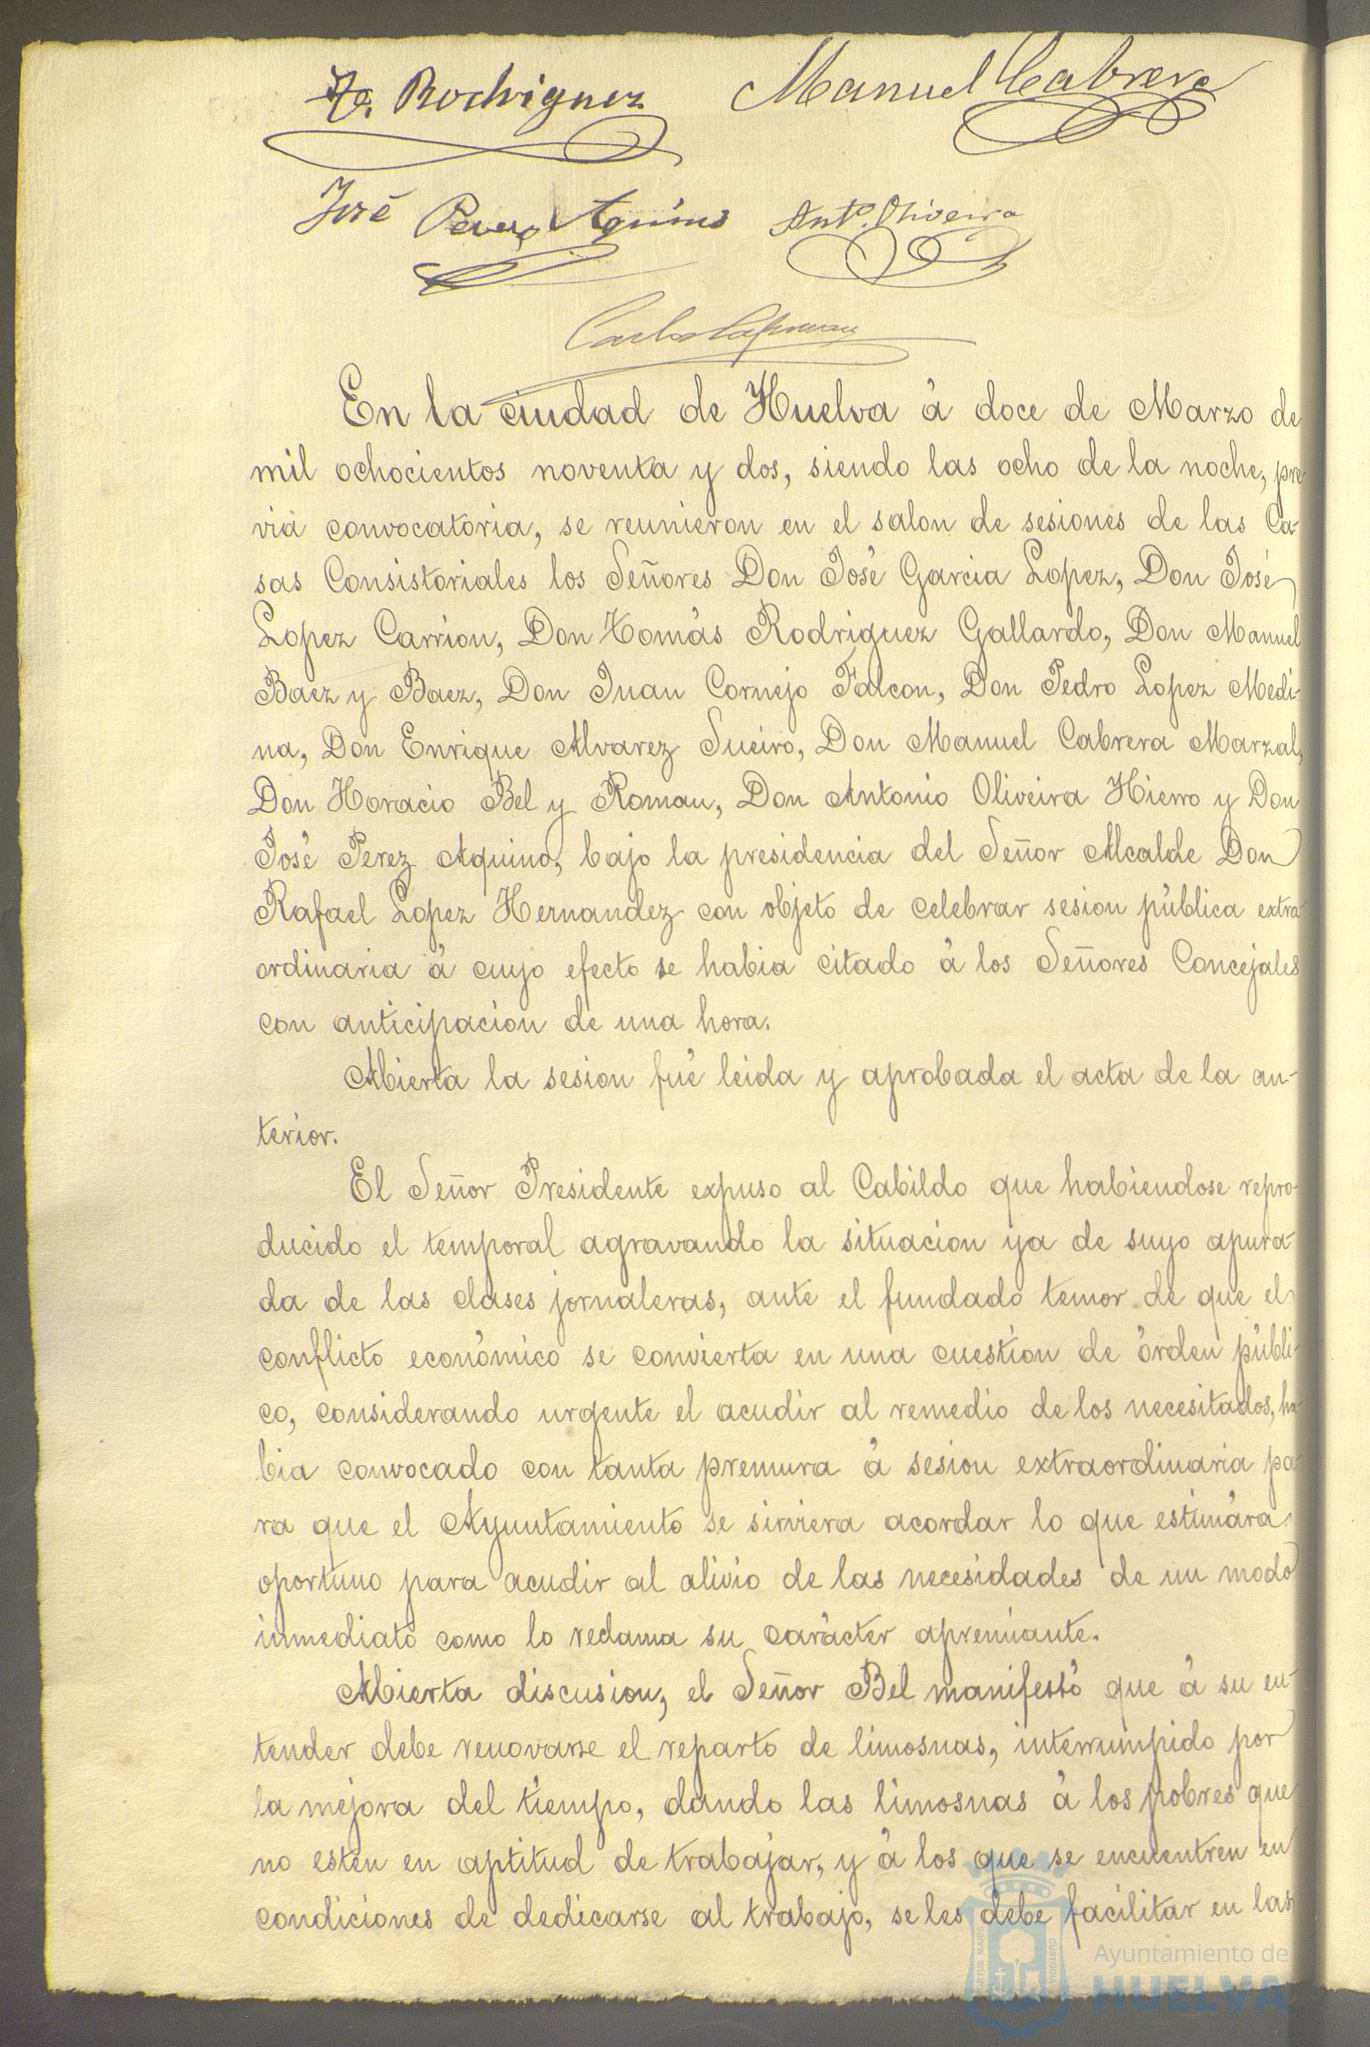 Rodriguez Manuel Cabrera
José Perez Aquino Ant.º Oliveira
Carlos
En la ciudad de Huelva á doce de Marzo de
mil ochocientos noventa y dos, siendo las ocho de la noche, pre-
via convocatoria, se reunieron en el salon de sesiones de las Ca-
sas Consistoriales los Señores Don José Garcia Lopez, Don José
Lopez Carrion, Don Tomás Rodriguez Gallardo, Don Manuel
Baez y Baez, Don Juan Cornejo Falcon, Don Pedro Lopez Medi-
na, Don Enrique Alvarez Sueiro, Don Manuel Cabrera Marzal,
Don Horacio Bel y Roman, Don Antonio Oliveira Hierro y Don
José Perez Aquino, bajo la presidencia del Señor Alcalde Don
Rafael Lopez Hernandez con objeto de celebrar sesion pública extra-
ordinaria á cuyo efecto se habia citado á los Señores Concejales
con anticipacion de una hora.
Abierta la sesion fué leida y aprobada el acta de la an-
terior.
El Señor Presidente expuso al Cabildo que habiendose repro-
ducido el temporal agravando la situacion ya de suyo apura-
da de las clases jornaleras, ante el fundado temor de que el
conflicto económico se convierta en una cuestion de órden públi-
co, considerando urgente el acudir al remedio de los necesitados, ha-
bia convocado con tanta premura á sesion extraordinaria pa-
ra que el Ayuntamiento se sirviera acordar lo que estimára
oportuno para acudir al alivio de las necesidades de un modo
inmediato como lo reclama su carácter apremiante.
Abierta discusion, el Señor Bel manifestó que á su en-
tender debe renovarse el reparto de limosnas, interrumpido por
la mejora del tiempo, dando las limosnas á los pobres que
no esten en aptitud de trabajar, y á los que se encuentren en
condiciones de dedicarse al trabajo, se les debe facilitar en las
Ayuntamiento de
HUELVA